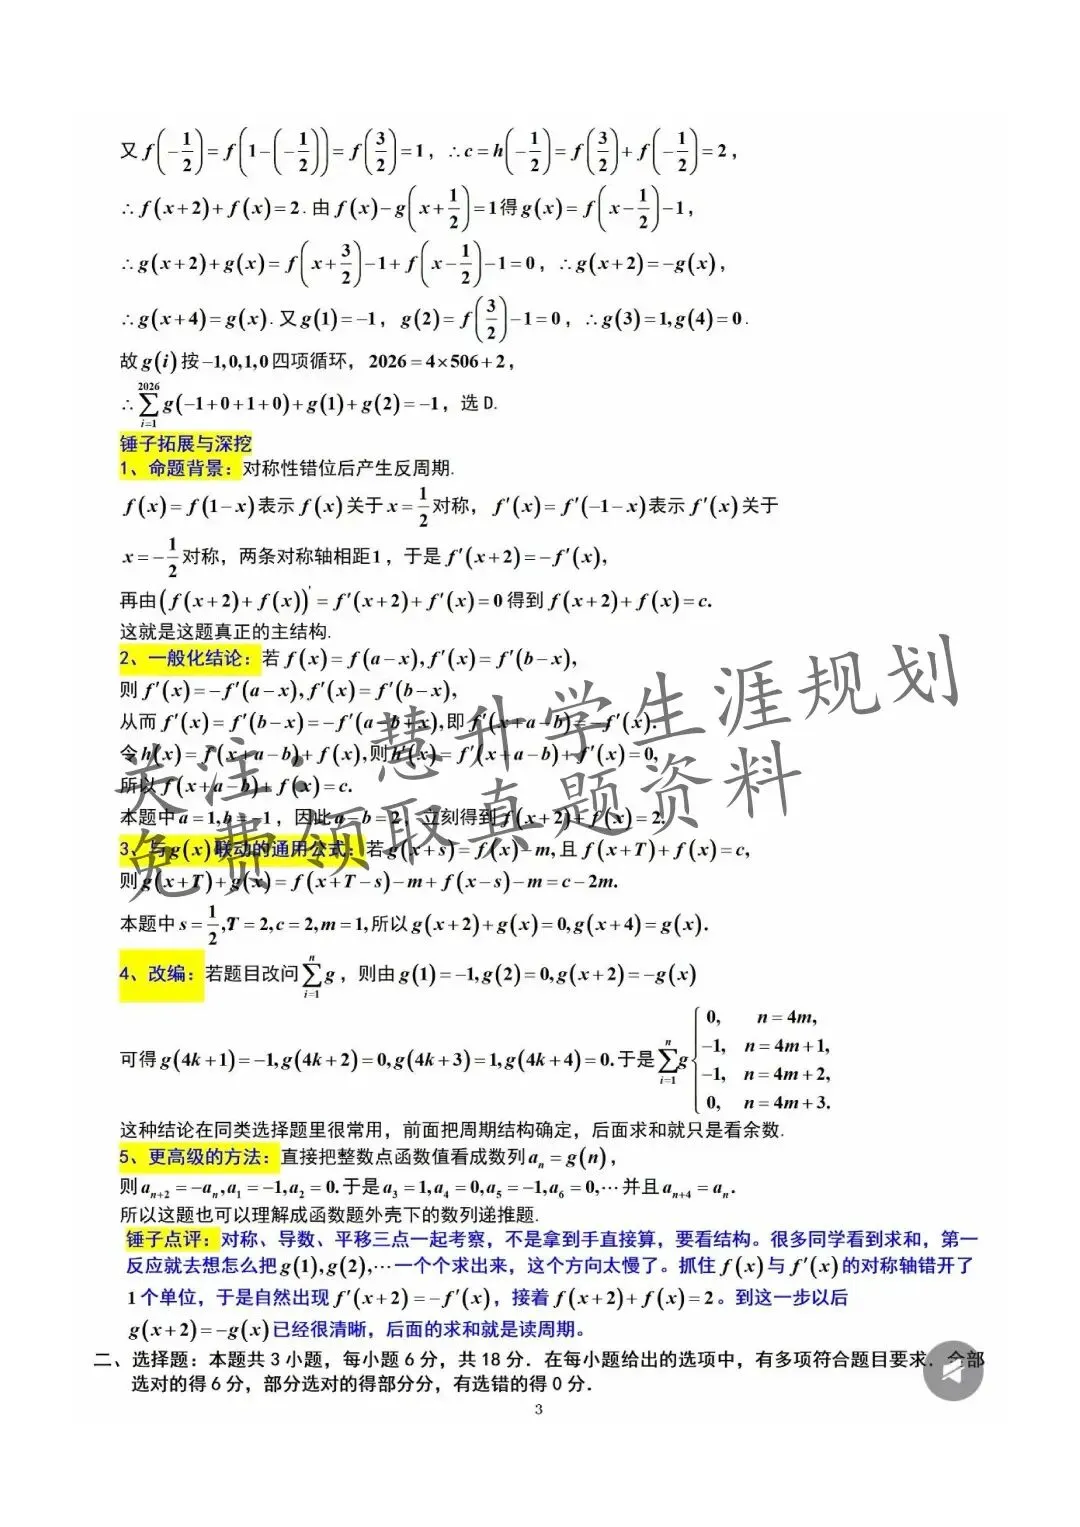 又 f(-1/2)=f(1-(-1/2))=f(3/2)=1，∴c=h(-1/2)=f(3/2)+f(-1/2)=2，
∴f(x+2)+f(x)=2. 由 f(x)-g(x+1/2)=1得g(x)=f(x-1/2)-1，
∴g(x+2)+g(x)=f(x+3/2)-1+f(x-1/2)-1=0，∴g(x+2)=-g(x)，
∴g(x+4)=g(x). 又g(1)=-1，g(2)=f(3/2)-1=0，∴g(3)=1,g(4)=0.
故g(i)按-1,0,1,0四项循环，2026=4×506+2，
∴∑_{i=1}^{2026} g(-1+0+1+0)+g(1)+g(2)=-1，选 D.
锤子拓展与深挖
1、命题背景：对称性错位后产生反周期.
f(x)=f(1-x)表示f(x)关于x=1/2对称，f′(x)=f′(-1-x)表示f′(x)关于
x=-1/2对称，两条对称轴相距1，于是f′(x+2)=-f′(x)，
再由(f(x+2)+f(x))′=f′(x+2)+f′(x)=0得到f(x+2)+f(x)=c.
这就是这题真正的主结构.
2、一般化结论：若f(x)=f(a-x),f′(x)=f′(b-x),
则f′(x)=-f′(a-x),f′(x)=f′(b-x),
从而f′(x)=f′(b-x)=-f′(a-b+x),即f′(x+a-b)=-f′(x).
令h(x)=f(x+a-b)+f(x),则h′(x)=f′(x+a-b)+f′(x)=0,
所以f(x+a-b)+f(x)=c.
本题中a=1,b=-1，因此a-b=2，立刻得到f(x+2)+f(x)=2.
3、与g(x)联动的通用公式：若g(x+s)=f(x)-m,且f(x+T)+f(x)=c,
则g(x+T)+g(x)=f(x+T-s)-m+f(x-s)-m=c-2m.
本题中s=1/2,T=2,c=2,m=1,所以g(x+2)+g(x)=0,g(x+4)=g(x).
4、改编：若题目改问∑_{i=1}^{n} g，则由g(1)=-1,g(2)=0,g(x+2)=-g(x)
可得g(4k+1)=-1,g(4k+2)=0,g(4k+3)=1,g(4k+4)=0.于是∑_{i=1}^{n} g{
0, n=4m,
-1, n=4m+1,
-1, n=4m+2,
0, n=4m+3.
这种结论在同类选择题里很常用，前面把周期结构确定，后面求和就只是看余数.
5、更高级的方法：直接把整数点函数值看成数列aₙ=g(n)，
则aₙ₊₂=-aₙ,a₁=-1,a₂=0.于是a₃=1,a₄=0,a₅=-1,a₆=0,⋯并且aₙ₊₄=aₙ.
所以这题也可以理解成函数题外壳下的数列递推题.
锤子点评：对称、导数、平移三点一起考察，不是拿到手直接算，要看结构。很多同学看到求和，第一
反应就去想怎么把g(1),g(2),⋯一个个求出来，这个方向太慢了。抓住f(x)与f′(x)的对称轴错开了
1个单位，于是自然出现f′(x+2)=-f′(x)，接着f(x+2)+f(x)=2。到这一步以后
g(x+2)=-g(x)已经很清晰，后面的求和就是读周期。
二、选择题：本题共3小题，每小题6分，共18分．在每小题给出的选项中，有多项符合题目要求．全部
选对的得6分，部分选对的得部分分，有选错的得0分．
3
关注：慧升学生涯规划
免费领取真题资料